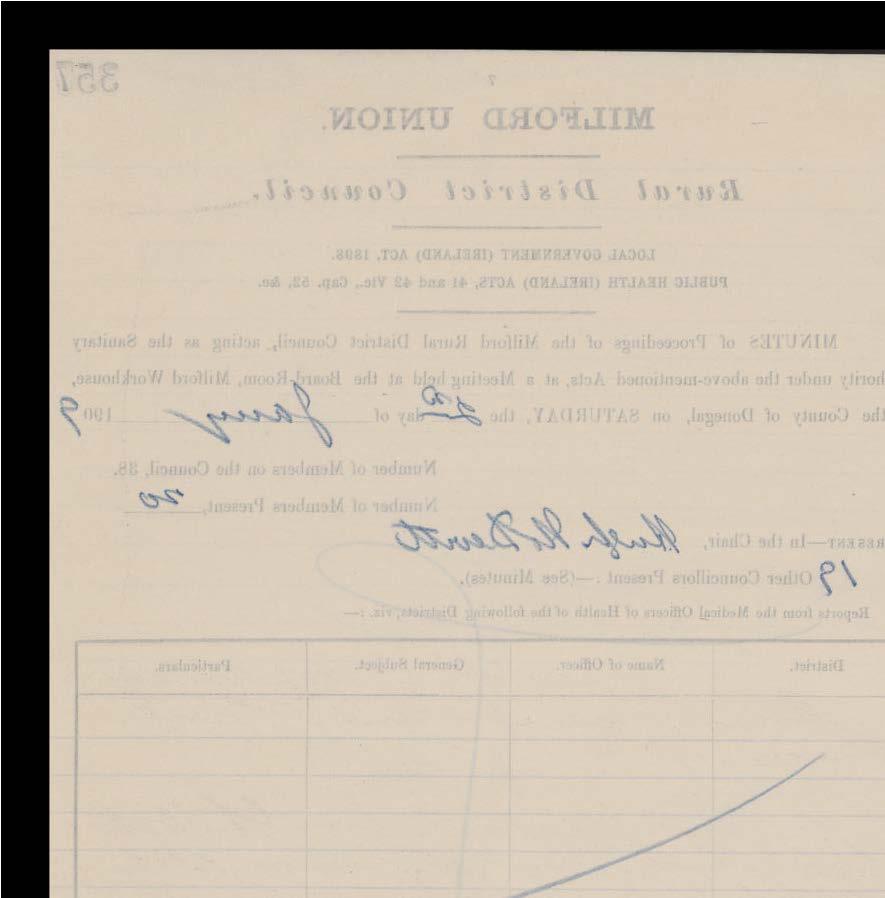 357
7
MILFORD UNION.
Rural District Council.
LOCAL GOVERNMENT (IRELAND) ACT, 1898.
PUBLIC HEALTH (IRELAND) ACTS, 41 and 42 Vic., Cap. 52, &c.
MINUTES of Proceedings of the Milford Rural District Council, acting as the Sanitary
hority under the above-mentioned Acts, at a Meeting held at the Board-Room, Milford Workhouse,
the County of Donegal, on SATURDAY, the day of Jany 1909
Number of Members on the Council, 38.
Number of Members Present, 20
RESENT—In the Chair, Hugh McDevitt
19 Other Councillors Present :—(See Minutes).
Reports from the Medical Officers of Health of the following Districts, viz. :—
District. Name of Officer. General Subject. Particulars.